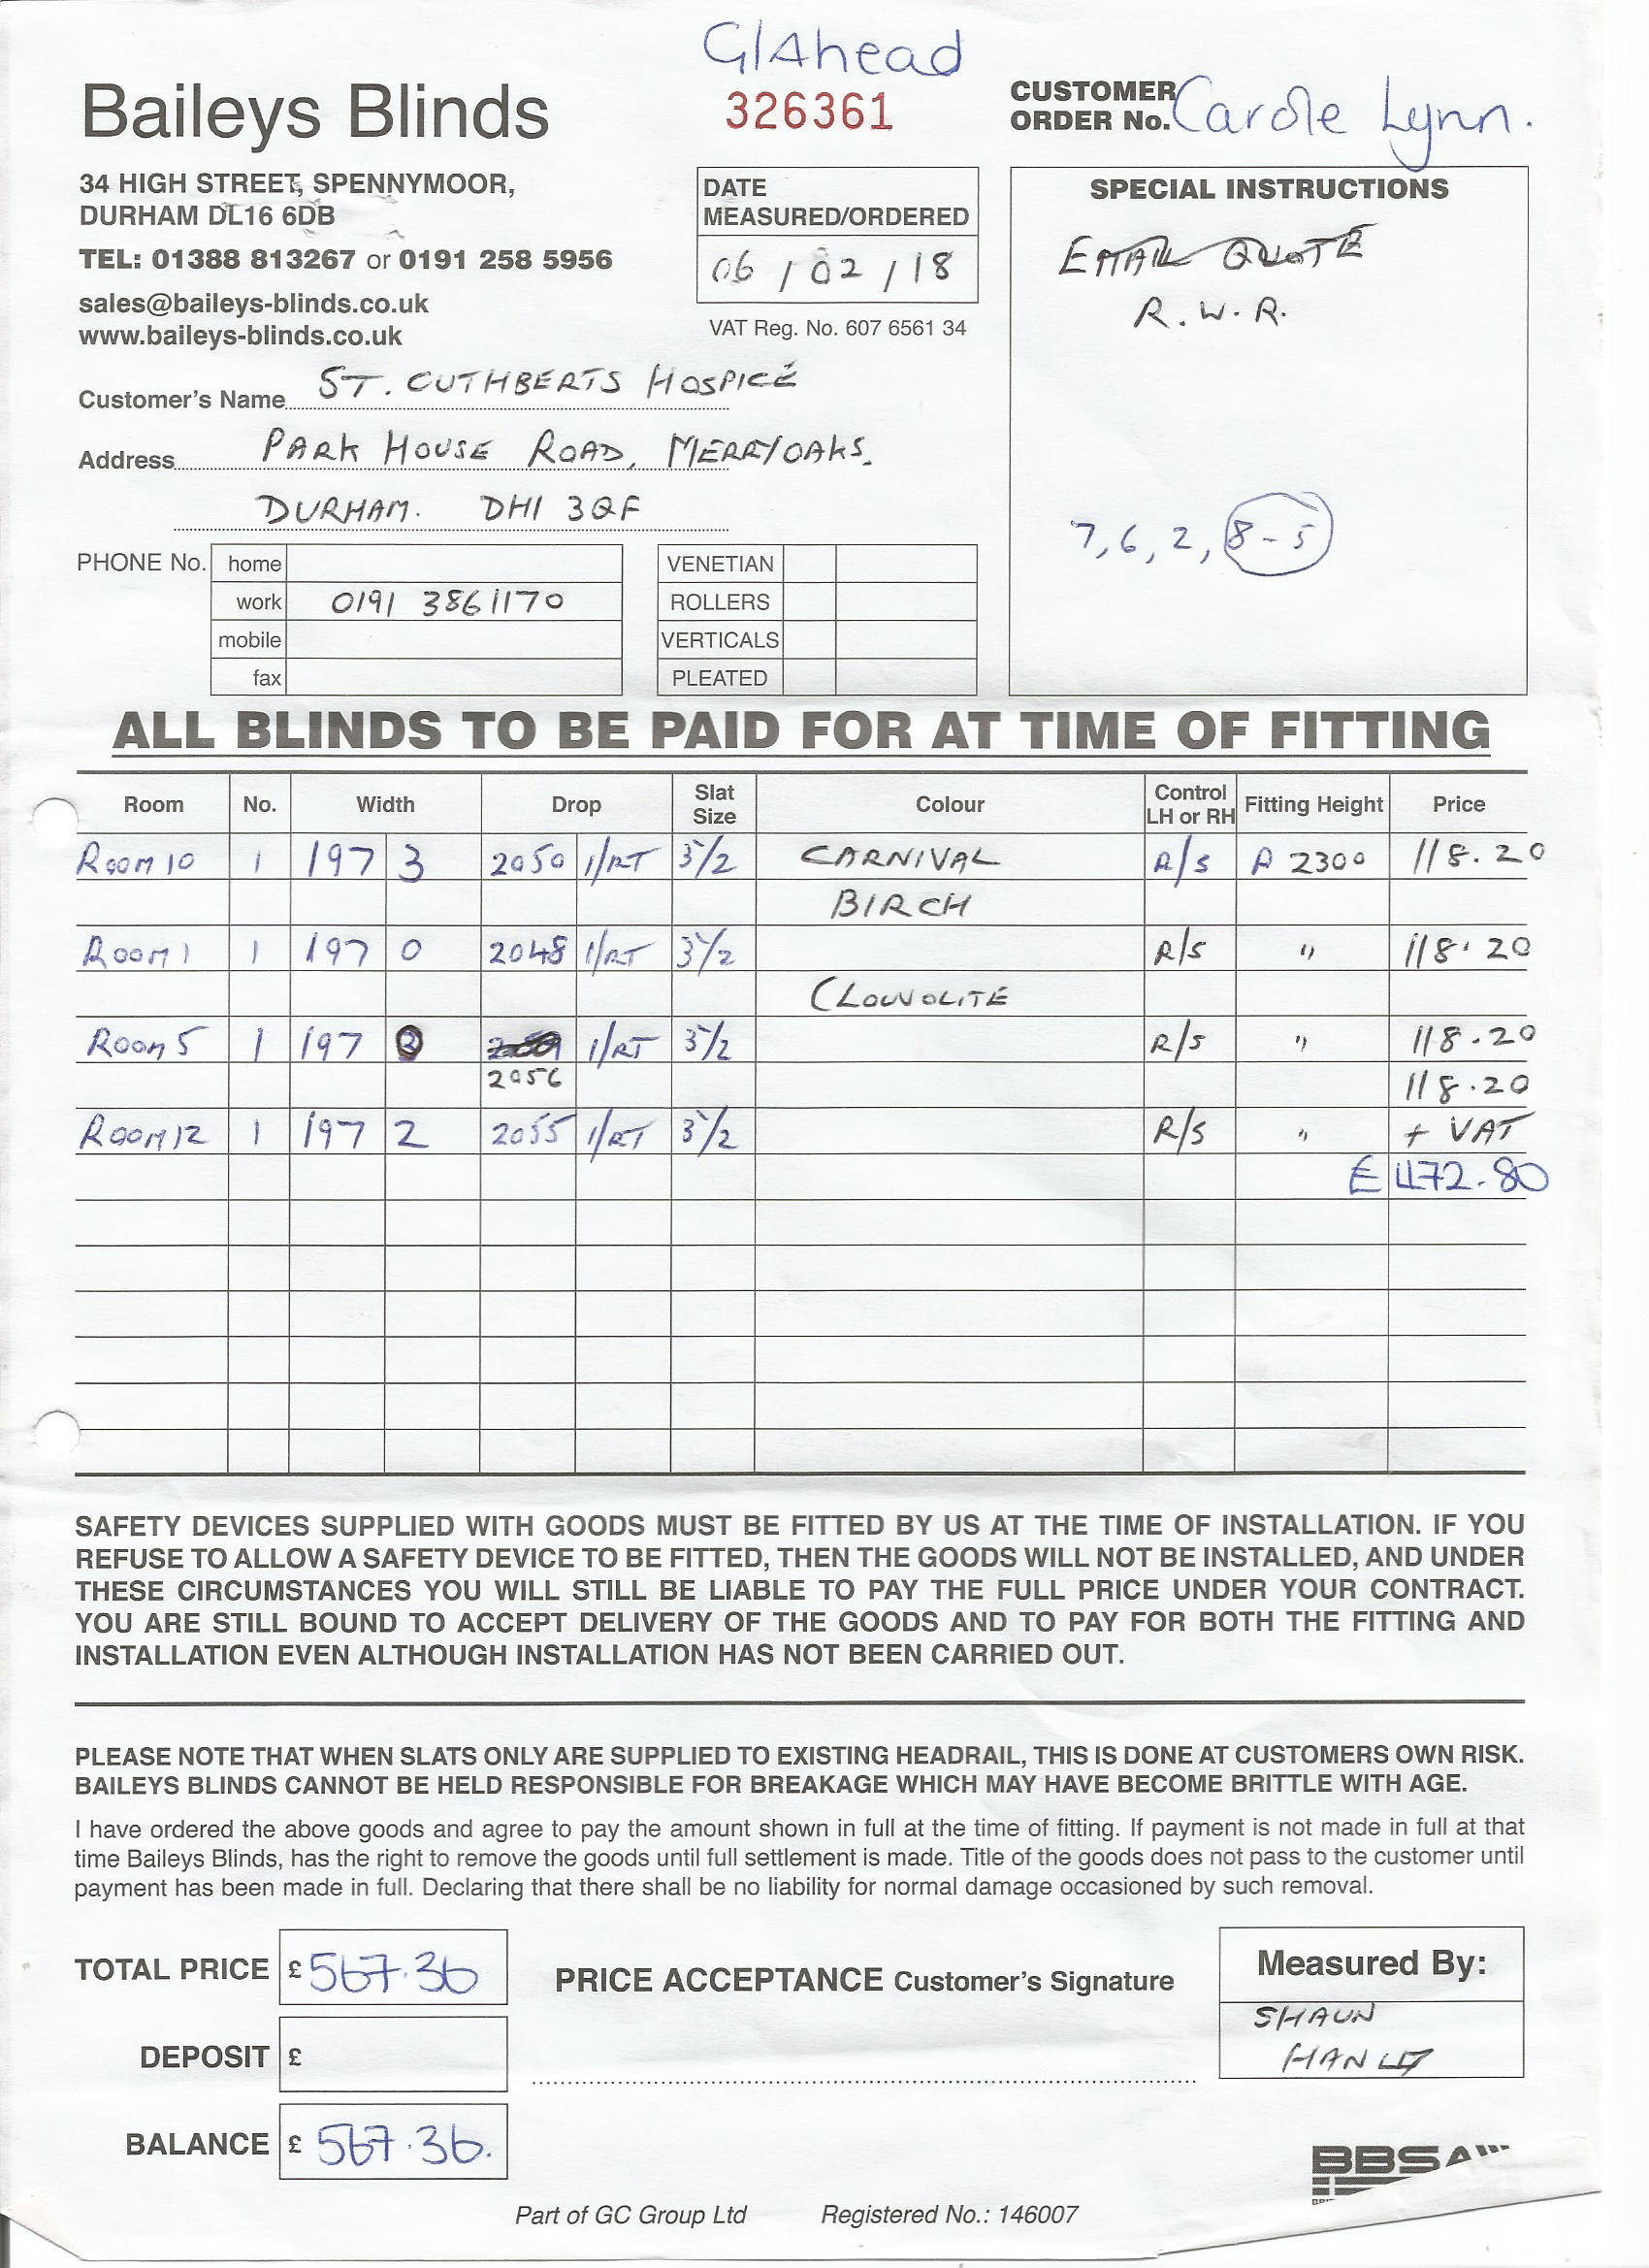 G/Ahead
Baileys Blinds
326361
CUSTOMER
ORDER No. Carole Lynn.
34 HIGH STREET, SPENNYMOOR,
DURHAM DL16 6DB
TEL: 01388 813267 or 0191 258 5956
sales@baileys-blinds.co.uk
www.baileys-blinds.co.uk
DATE
MEASURED/ORDERED
06 / 02 / 18
VAT Reg. No. 607 6561 34
SPECIAL INSTRUCTIONS
EMAIL QUOTE
R.W.R.
7, 6, 2, 8-5
Customer's Name ST. CUTHBERTS HOSPICE
Address PARK HOUSE ROAD, MERRYOAKS.
DURHAM. DH1 3QF
PHONE No. home
work 0191 3861170
mobile
fax
VENETIAN
ROLLERS
VERTICALS
PLEATED
ALL BLINDS TO BE PAID FOR AT TIME OF FITTING
Room No. Width Drop Slat Size Colour Control LH or RH Fitting Height Price
ROOM 10 1 197 3 2050 1/RT 3½ CARNIVAL R/S A 2300 118.20
BIRCH
ROOM 1 1 197 0 2048 1/RT 3½ R/S " 118.20
(LOUVOLITE
ROOM 5 1 197 1/RT 3½ R/S " 118.20
2056 118.20
ROOM 12 1 197 2 2055 1/RT 3½ R/S " + VAT
£472.80
SAFETY DEVICES SUPPLIED WITH GOODS MUST BE FITTED BY US AT THE TIME OF INSTALLATION. IF YOU
REFUSE TO ALLOW A SAFETY DEVICE TO BE FITTED, THEN THE GOODS WILL NOT BE INSTALLED, AND UNDER
THESE CIRCUMSTANCES YOU WILL STILL BE LIABLE TO PAY THE FULL PRICE UNDER YOUR CONTRACT.
YOU ARE STILL BOUND TO ACCEPT DELIVERY OF THE GOODS AND TO PAY FOR BOTH THE FITTING AND
INSTALLATION EVEN ALTHOUGH INSTALLATION HAS NOT BEEN CARRIED OUT.
PLEASE NOTE THAT WHEN SLATS ONLY ARE SUPPLIED TO EXISTING HEADRAIL, THIS IS DONE AT CUSTOMERS OWN RISK.
BAILEYS BLINDS CANNOT BE HELD RESPONSIBLE FOR BREAKAGE WHICH MAY HAVE BECOME BRITTLE WITH AGE.
I have ordered the above goods and agree to pay the amount shown in full at the time of fitting. If payment is not made in full at that
time Baileys Blinds, has the right to remove the goods until full settlement is made. Title of the goods does not pass to the customer until
payment has been made in full. Declaring that there shall be no liability for normal damage occasioned by such removal.
TOTAL PRICE £ 567.36
PRICE ACCEPTANCE Customer's Signature
Measured By:
SHAUN
DEPOSIT £
BALANCE £ 567.36.
BBSA
Part of GC Group Ltd Registered No.: 146007